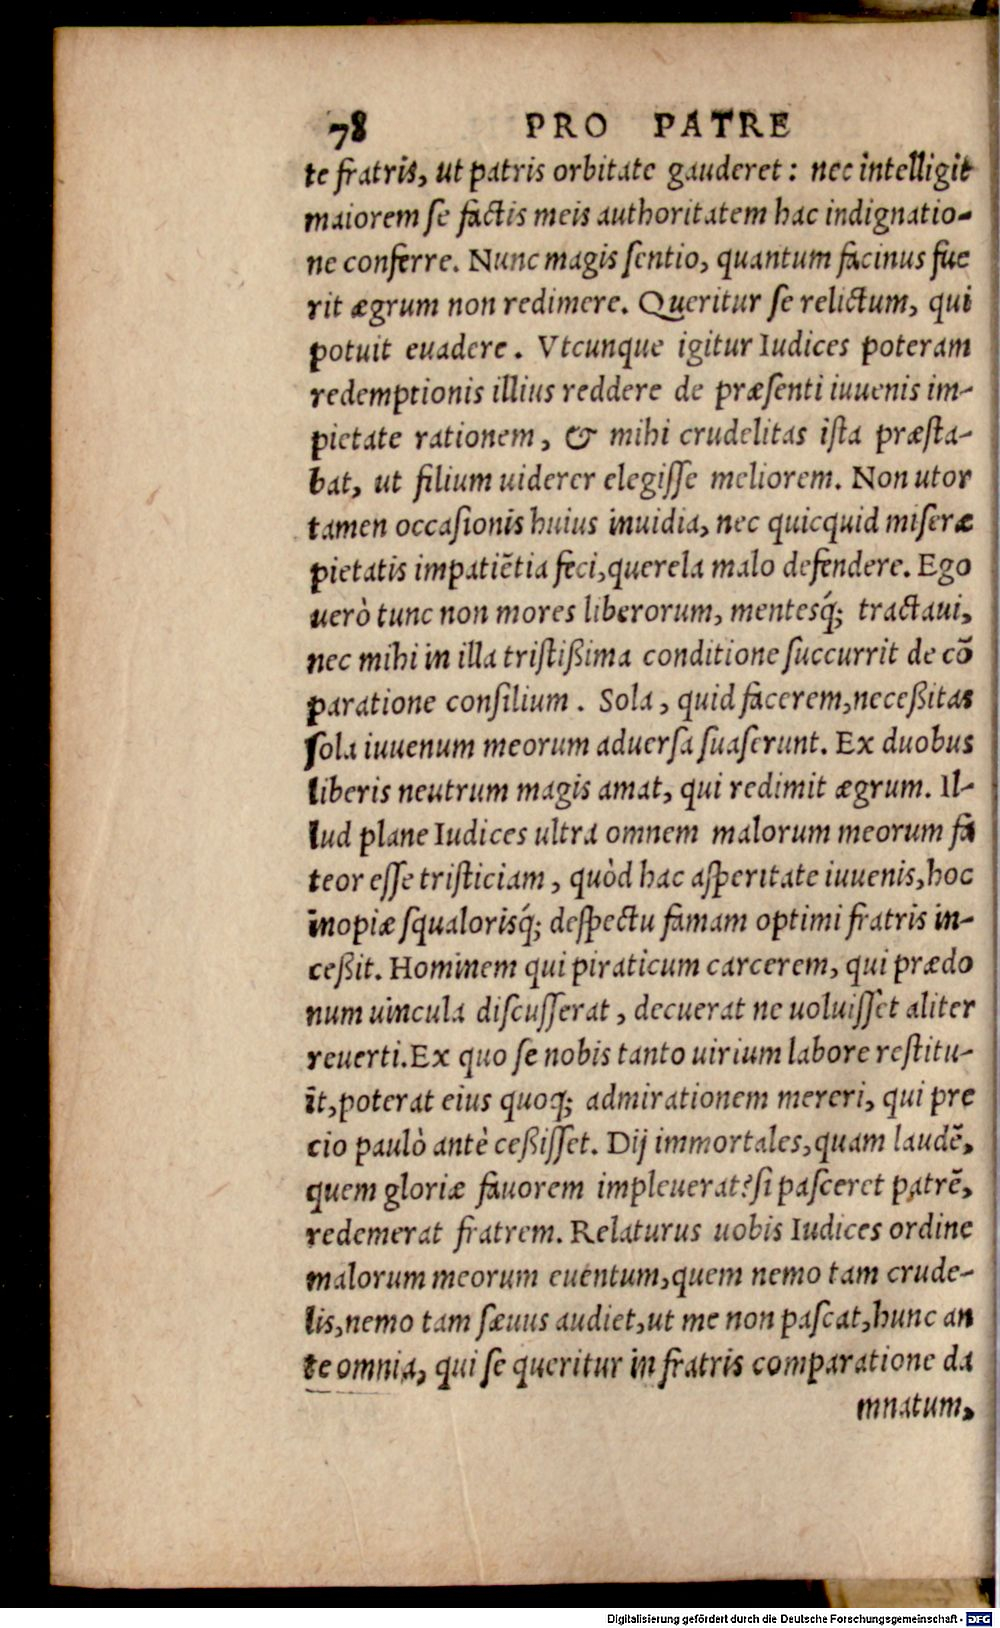 78 PRO PATRE
te fratris, ut patris orbitate gauderet: nec intelligit
maiorem se factis meis authoritatem hac indignatio-
ne conferre. Nunc magis sentio, quantum facinus fue
rit ægrum non redimere. Queritur se relictum, qui
potuit euadere. Vtcunque igitur Iudices poteram
redemptionis illius reddere de præsenti iuuenis im-
pietate rationem, & mihi crudelitas ista præsta-
bat, ut filium uiderer elegisse meliorem. Non utor
tamen occasionis huius inuidia, nec quicquid miseræ
pietatis impatiẽtia feci, querela malo defendere. Ego
uerò tunc non mores liberorum, mentesq́; tractaui,
nec mihi in illa tristißima conditione succurrit de cõ
paratione consilium. Sola, quid facerem, neceßitas
sola iuuenum meorum aduersa suaserunt. Ex duobus
liberis neutrum magis amat, qui redimit ægrum. Il-
lud plane Iudices ultra omnem malorum meorum fa
teor esse tristiciam, quòd hac asperitate iuuenis, hoc
inopiæ squalorisq́; despectu famam optimi fratris in-
ceßit. Hominem qui piraticum carcerem, qui prædo
num uincula discusserat, decuerat ne uoluisset aliter
reuerti. Ex quo se nobis tanto uirium labore restitu-
it, poterat eius quoq; admirationem mereri, qui pre
cio paulò antè ceßisset. Dij immortales, quam laudẽ,
quem gloriæ fauorem impleuerat? si pasceret patrẽ,
redemerat fratrem. Relaturus uobis Iudices ordine
malorum meorum euentum, quem nemo tam crude-
lis, nemo tam sæuus audiet, ut me non pascat, hunc an
te omnia, qui se queritur in fratris comparatione da
mnatum,
Digitalisierung gefördert durch die Deutsche Forschungsgemeinschaft - DFG